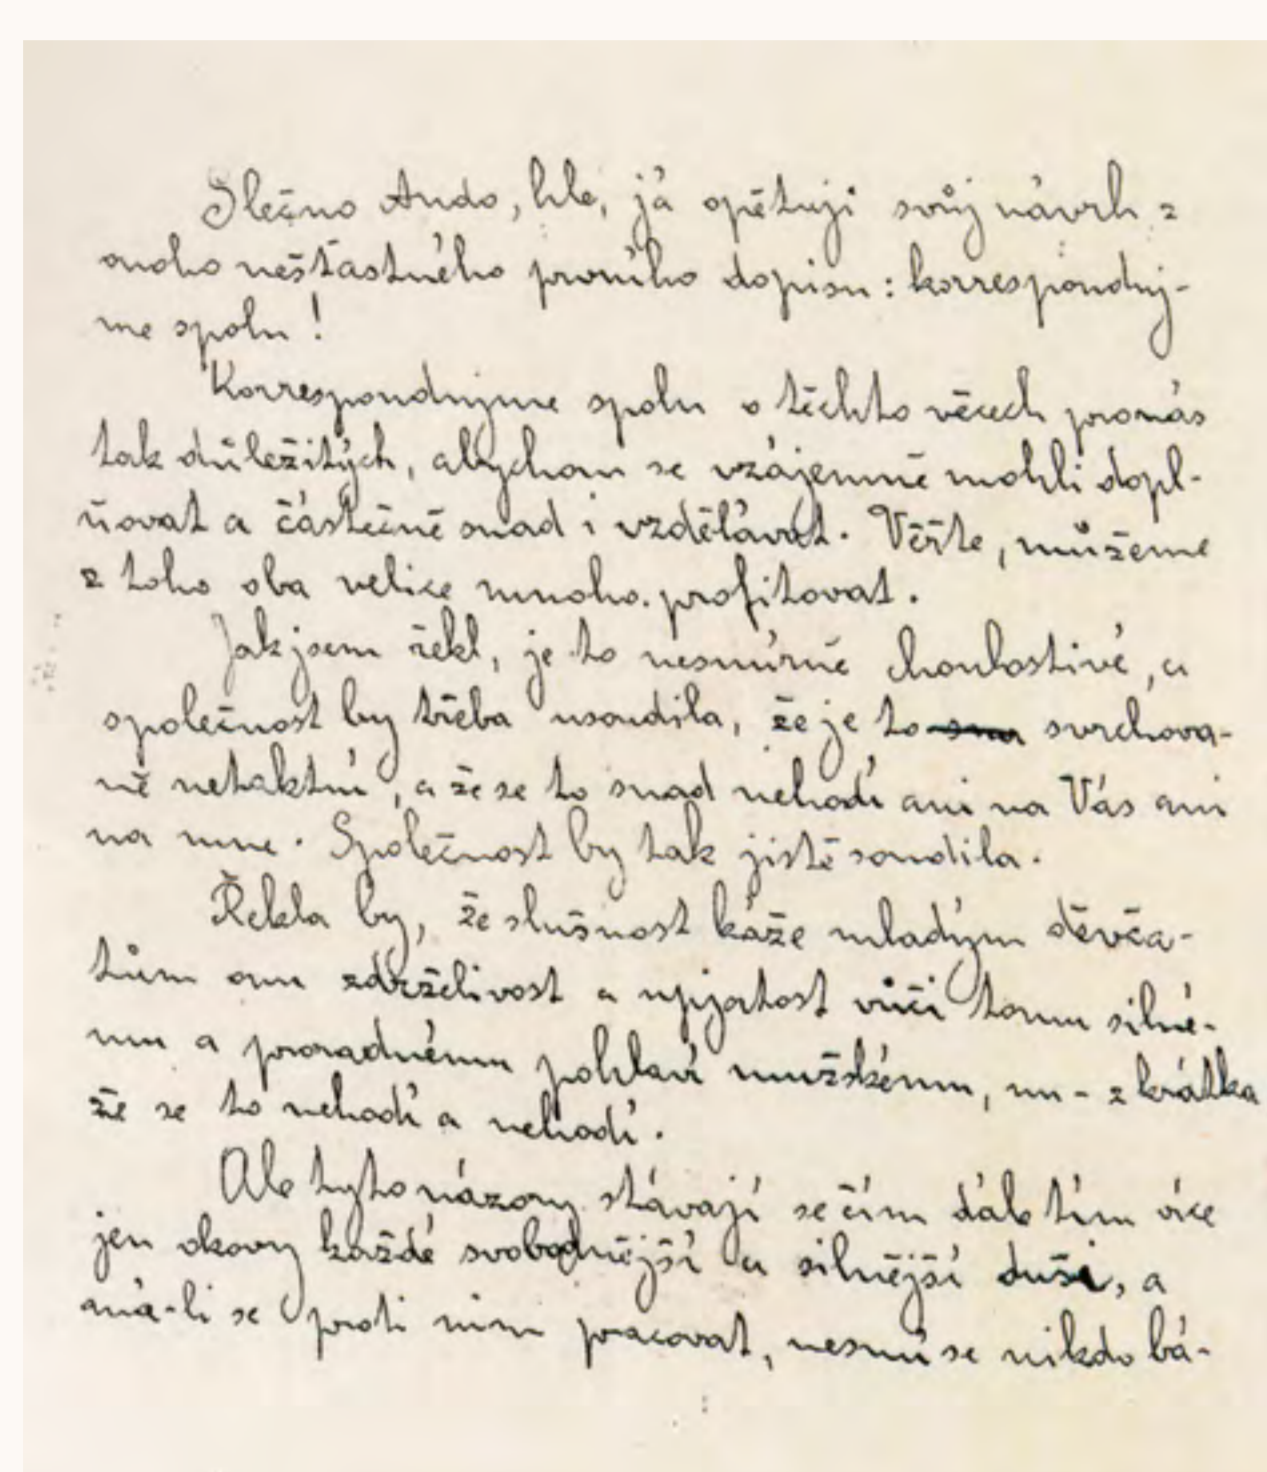 Slečno Ando, hle, já opětuji svůj návrh z
onoho nešťastného prvního dopisu: korresponduj-
me spolu!
Korrespondujme spolu o těchto věcech pro nás
tak důležitých, abychom se vzájemně mohli dopl-
ňovat a částečně snad i vzdělávat. Věřte, můžeme
z toho oba velice mnoho profitovat.
Jak jsem řekl, je to nesmírně choulostivé, a
společnost by třeba usoudila, že je to svrchova-
ně netaktní, a že se to snad nehodí ani na Vás ani
na mne. Společnost by tak jistě soudila.
Řekla by, že slušnost káže mladým děvča-
tům onu zdrželivost a upjatost vůči tomu silné-
mu a proradnému pohlaví mužskému, nu - zkrátka
že se to nehodí a nehodí.
Ale tyto názory stávají se čím dále tím více
jen okovy každé svobodnější a silnější duši, a
má-li se proti nim pracovat, nesmí se nikdo bá-